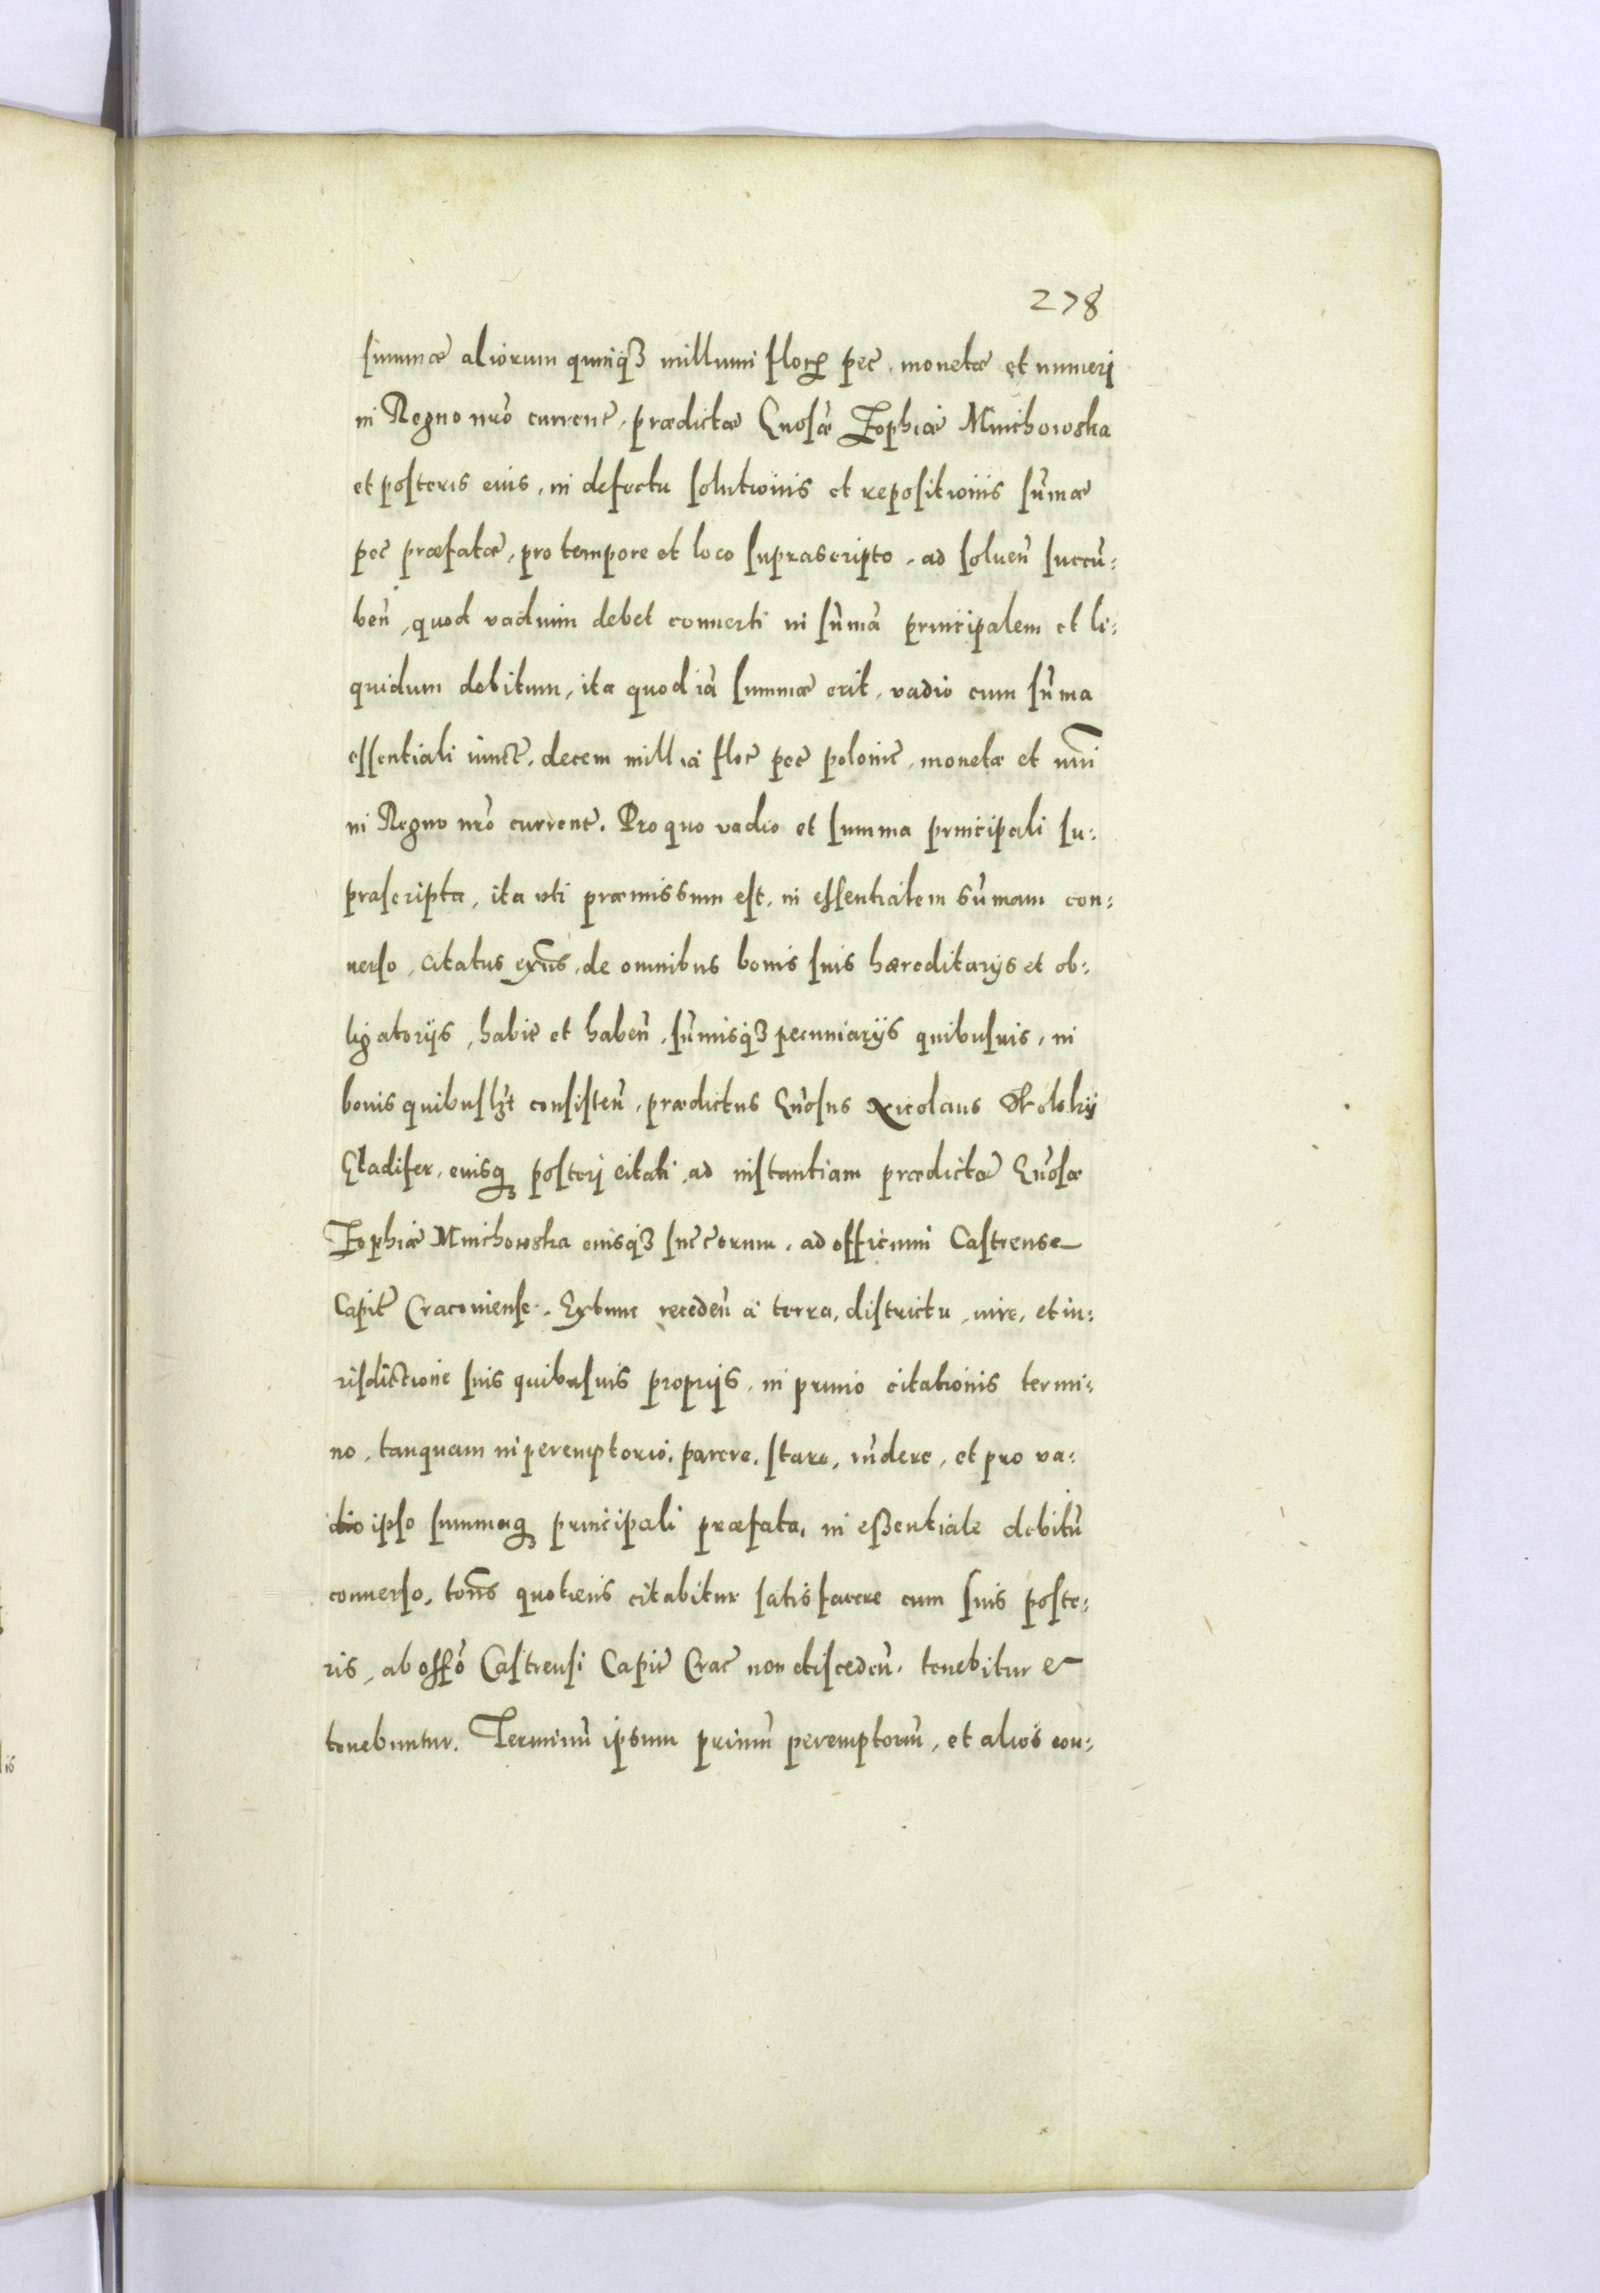 278
summæ aliorum quinq3 millium floꝝ pec̃, monetæ et numeri
in Regno nr̃o currenẽ, prædictæ Gnosæ Zophiæ Minichowska
et posteris eius, in defectu solutionis et repositionis sum̃æ
pec̃ præfatæ, pro tempore et loco suprascripto, ad soluen̄ succū:
ben̄, quod vadium debet conuerti in sum̃ã principalem et li:
quidum debitum, ita quod iã summæ erit, vadio cum sum̃a
essentiali iunct̃, decem millia floc̃ pec̃ polonic̃, monetæ et nr̃i
in Regno nr̃o currenẽ. Pro quo vadio et summa principali su:
prascripta, ita vti præmissum est, in essentialem sum̃am con:
uerso, citatus exñs, de omnibus bonis suis hæreditarijs et ob:
ligatorijs, habit̃ et haben̄, sum̃isq3 pecuniarijs quibusuis, in
bonis quibusl3t consisten̄, prædictus Gn̄osus Nicolaus Wolsky
Gladifer, eiusq3 posteri citati, ad instantiam prædictæ Gn̄osæ
Zophiæ Minichowska eiusq3 succ̃orum, ad officium Castrense
Capit̃ Cracouiense. Extunc receden̄ a terra, districtu, iure, et iu:
risdictione suis quibusuis proprijs, in primo citationis termi:
no, tanquam in peremptorio, parere, stare, rn̄dere, et pro va:
dio ipso summaq3 principali præfata, in eßentiale debitū
conuerso, totĩes quotiens citabitur satisfacere cum suis poste:
ris, ab off̃o Castrensi Capit̃ Crac̃ non disceden̄, tenebitur et
tenebuntur. Terminū ipsum primū peremptoriū, et alios con: